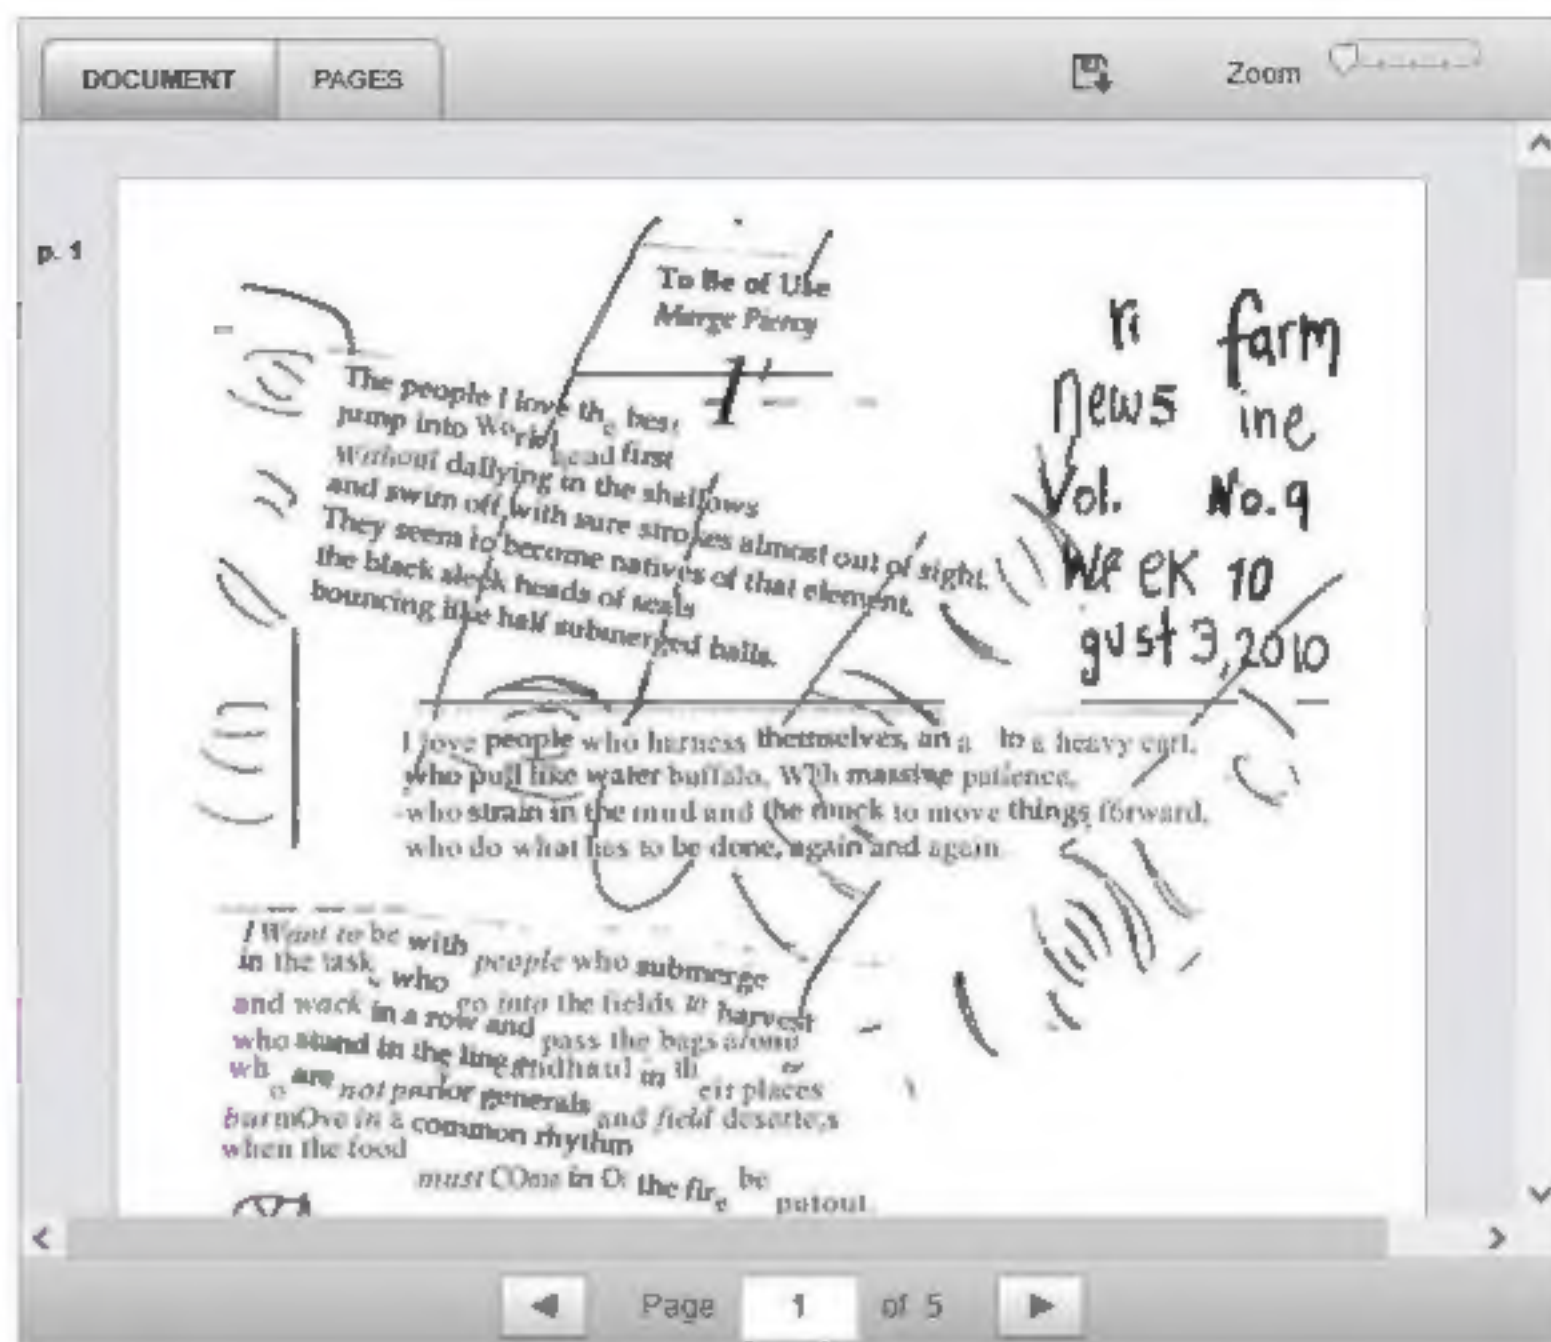 DOCUMENT PAGES Zoom
p. 1
To Be of Use
Marge Piercy
The people I love the best
jump into World head first
without dallying in the shallows
and swim off with sure strokes almost out of sight.
They seem to become natives of that element,
the black sleek heads of seals
bouncing like half submerged balls.
ri farm
news ine
Vol. No. 9
Week 10
gust 3, 2010
I love people who harness themselves, an a to a heavy cart,
who pull like water buffalo, With massive patience,
who strain in the mud and the muck to move things forward,
who do what has to be done, again and again
I Want to be with people who submerge
in the task, who go into the fields to harvest
and wack in a row and pass the bags along
who stand in the line and haul in their places
who are not parlor generals and field deserters
but mOve in a common rhythm
when the food must COme in Or the fire be
put out
Page 1 of 5